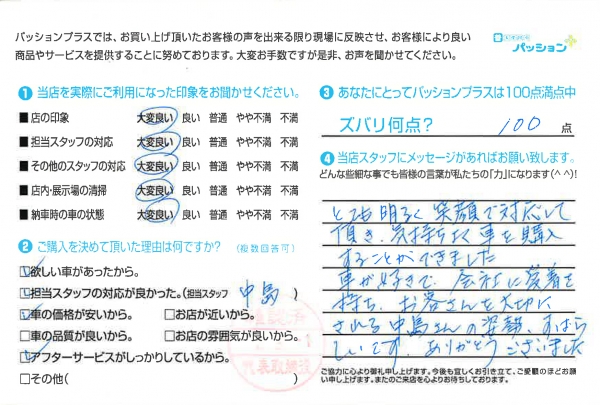 パッションプラスでは、お買い上げ頂いたお客様の声を出来る限り現場に反映させ、お客様により良い
商品やサービスを提供することに努めております。大変お手数ですが是非、お声を聞かせてください。
パッション
① 当店を実際にご利用になった印象をお聞かせください。
■店の印象 大変良い 良い 普通 やや不満 不満
■担当スタッフの対応 大変良い 良い 普通 やや不満 不満
■その他のスタッフの対応 大変良い 良い 普通 やや不満 不満
■店内・展示場の清掃 大変良い 良い 普通 やや不満 不満
■納車時の車の状態 大変良い 良い 普通 やや不満 不満
② ご購入を決めて頂いた理由は何ですか? (複数回答可)
☑欲しい車があったから。
☑担当スタッフの対応が良かった。(担当スタッフ 中島 )
☑車の価格が安いから。 □お店が近いから。
□車の品質が良いから。 □お店の雰囲気が良いから。
☑アフターサービスがしっかりしているから。
□その他(
③ あなたにとってパッションプラスは100点満点中
ズバリ何点? 100 点
④ 当店スタッフにメッセージがあればお願い致します。
どんな些細な事でも皆様の言葉が私たちの「力」になります(^ ^)!
とても明るく笑顔で対応して
頂き、気持ちよく車を購入
することができました
車が好きで、会社に愛着を
持ち、お客さんを大切に
される中島さんの姿勢、すばら
しいです。ありがとうございました
ご協力に心より御礼申し上げます。今後も宜しくお引き立て、ご愛顧のほどお願
い申し上げます。またのご来店を心よりお待ちしております。